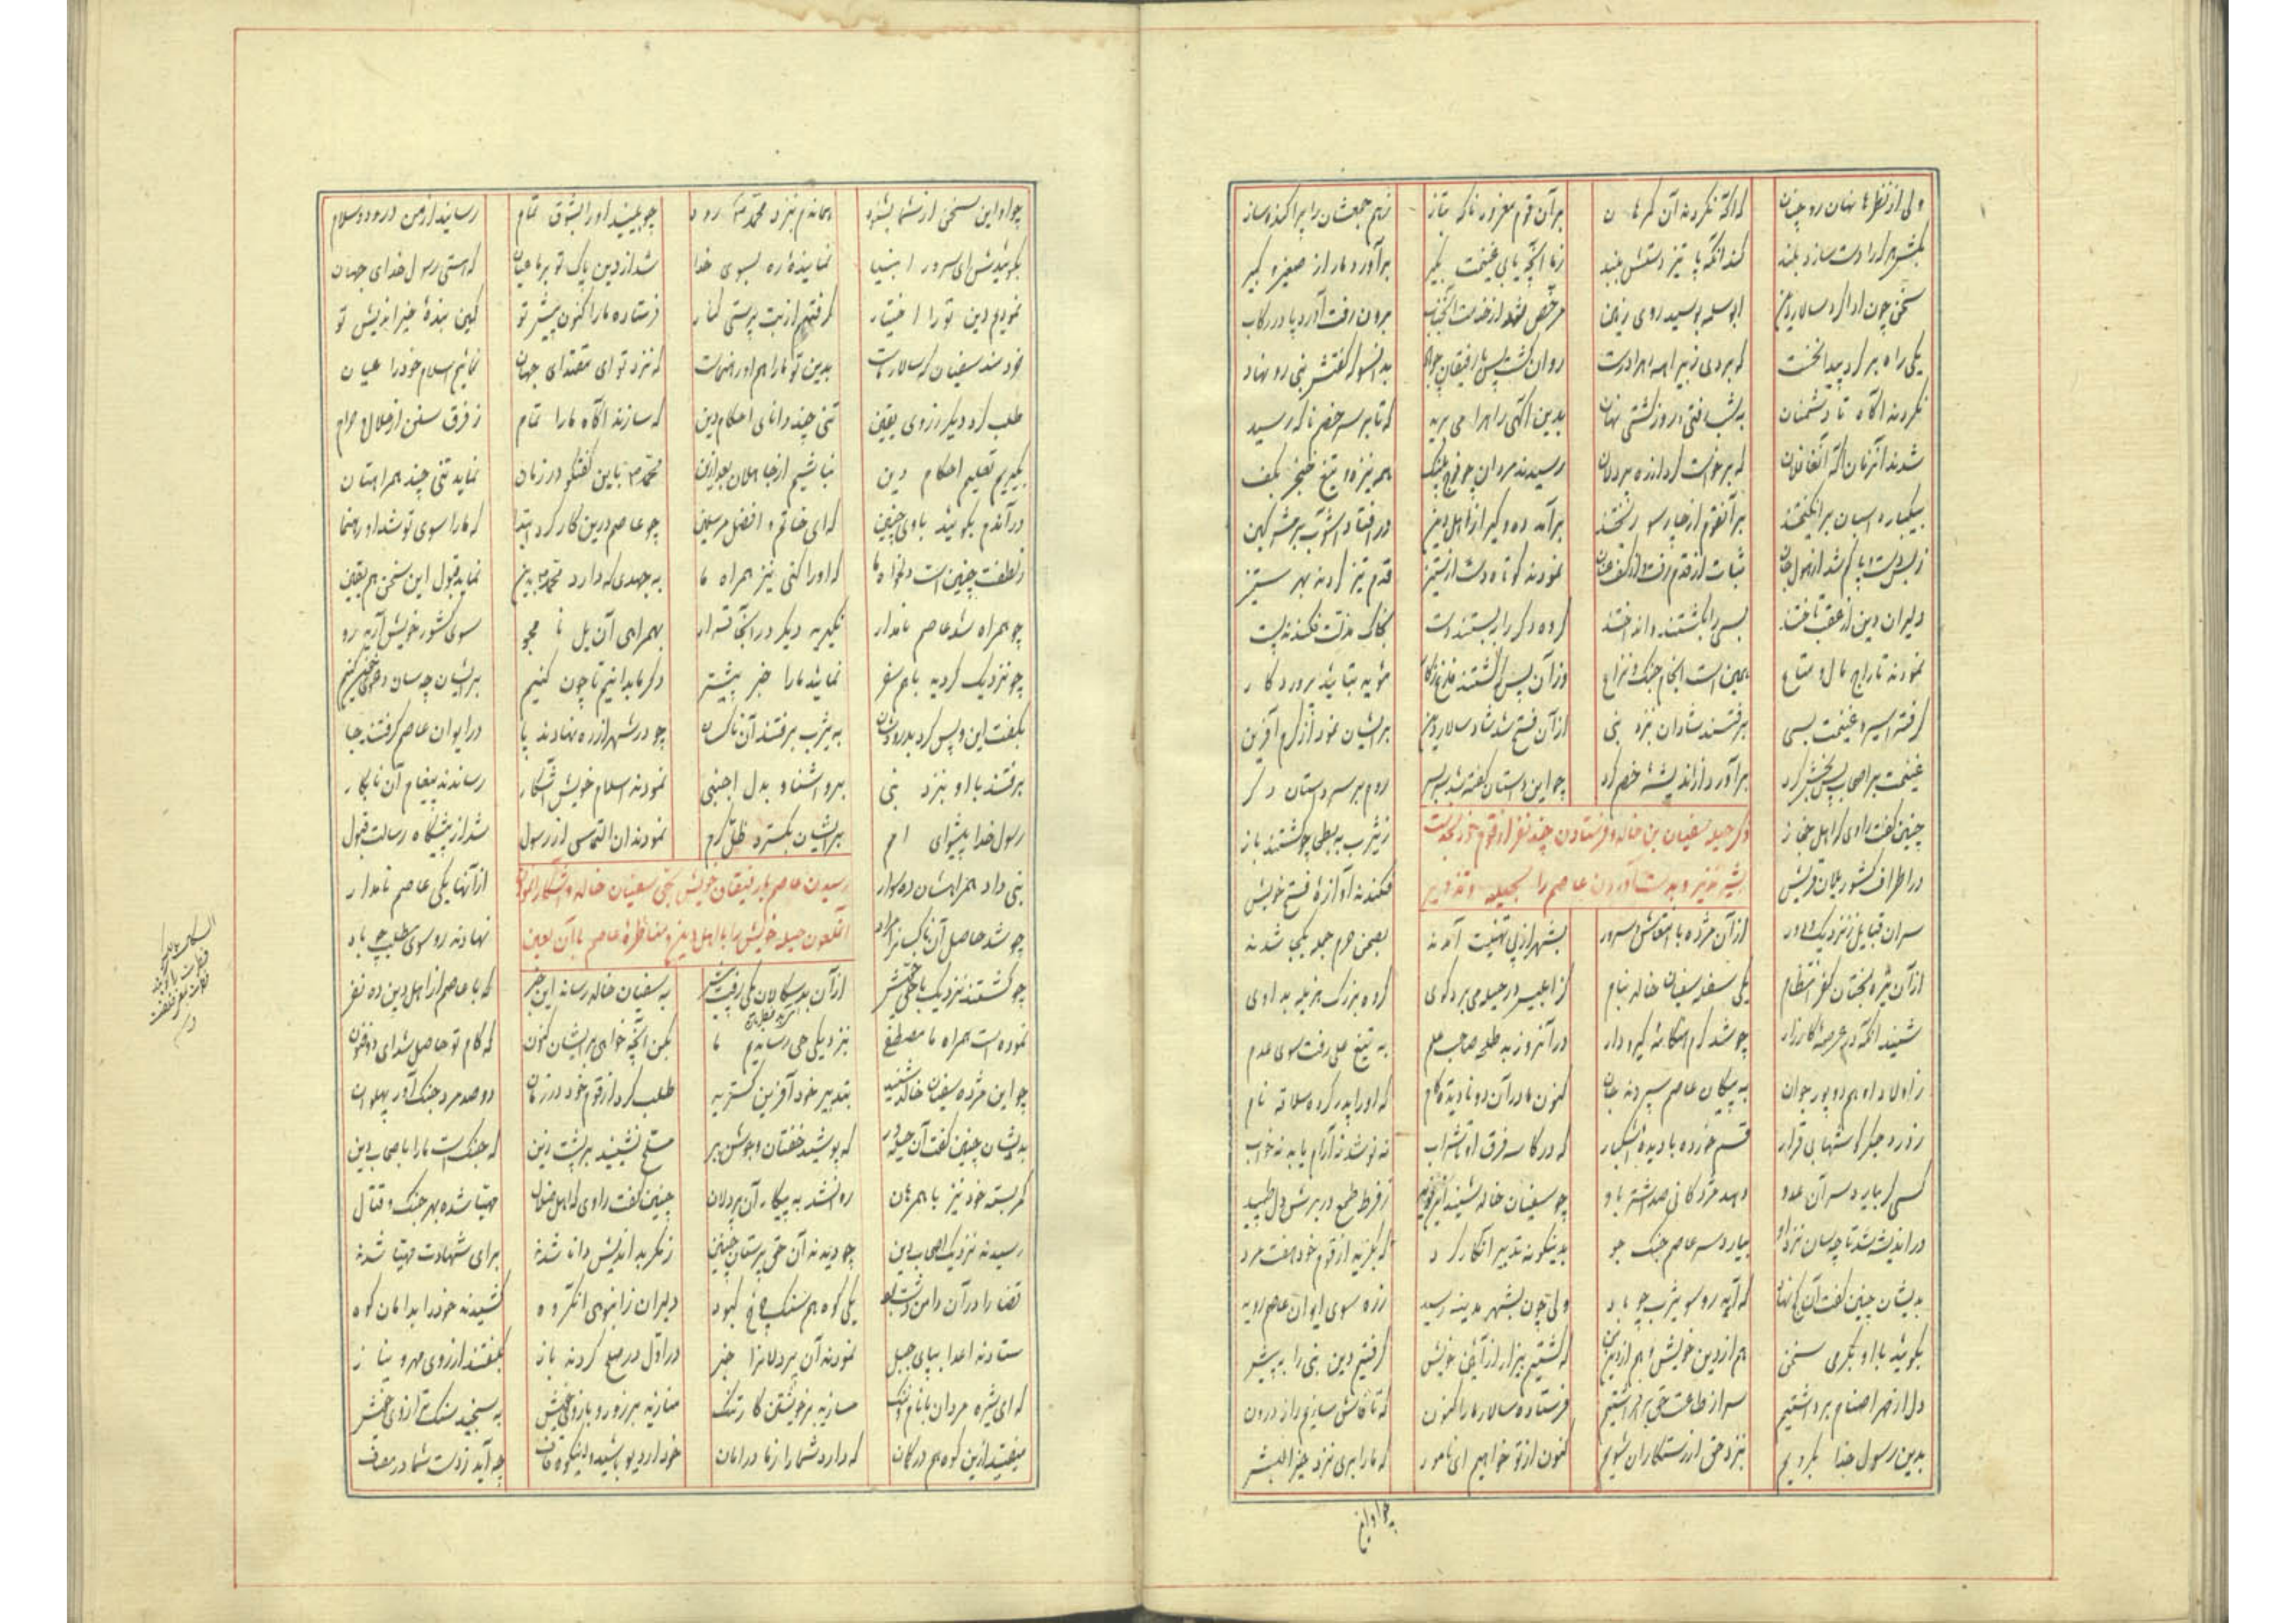 ولی از نظرها نهان رو چنان که اگه نکردند آن گمرهان بر آن قوم مغرور ناگه بتاز ز هم جمعشان را پراکنده ساز
بکش هر که را دست سازد بلند کند آنکه پا تیز دستش ببند ز ما آنچه یابی غنیمت بگیر برآور دمار از صغیر و کبیر
سخن چون ادا کرد سالار دین ابوسلمه بوسید روی زمین مرخص شد از خدمت آنجناب برون رفت آورد پا در رکاب
یکی راه بر کرد پیدا نخست که بردی ز بیراهه راه درست روان گشت پس با رفیقان چو باد بدانسو که گفتش نبی رو نهاد
نکردند آگاه تا دشمنان به شب تافتی و روز گشتی نهان بدین آگهی راه را می برید که تا بر سر خصم ناگه رسید
شدند آنزمان آگه آن غافلان که برخاست گرد از ره پردلان رسیدند مردان چو فوج پلنگ همه نیزه و تیغ و خنجر بچنگ
بیکباره اسبان برانگیختند بر آنقوم از چارسو ریختند برآمد ده و گیر از اهل دین درافتاد آشوب بر مشرکین
ز بس دست و پا گم شد از هول جان ثبات از قدم رفت و از کف عنان نمودند کوتاه دست از ستیز قدم تیز کردند بهر گریز
دلیران دین از عقب تاختند بسی را بکشتند و انداختند گروه دگر را ببستند دست بخاک مذلت فکندند پست
نمودند تاراج مال و متاع همین است انجام جنگ و نزاع وزآن پس که گشتند فارغ ز کار مؤید بتأیید پروردگار
گرفته اسیر و غنیمت بسی برفتند شادان نزد نبی از آن فتح شد شاد سالار دین بر ایشان نمود از کرم آفرین
غنیمت بر اصحاب پس بخش کرد برآورد از اندیشهٔ خصم گرد چو این داستان گفته شد سربسر روم بر سر داستان دگر
ذکر حیله سفیان بن خالد و فرستادن چند نفر از قوم خود بخدمت
بشیر نذیر و بدست آوردن عاصم را بحیله و تزویر
چنین گفت راوی که اهل حجاز ز یثرب به بطحا چو گشتند باز
در اطراف کشور یلان قریش فکندند آوازهٔ فتح خویش
سران قبایل ز نزدیک و دور از آن مژده با انتعاش و سرور بشهر از پی تهنیت آمدند بصحن حرم جمله یکجا شدند
از آن تیره بختان کفر انتظام یکی سفله سفیان خالد بنام کز ابلیس در حیله می برد گوی گروه بزرگ هذیله بد اوی
شنید آنکه در عرصهٔ کارزار چو شد گرم هنگامهٔ گیر و دار در آنروز بد طلحه صاحب علم به تیغ علی رفت سوی عدم
ز اولاد او هم دو پور جوان به پیکان عاصم سپردند جان کنون مادر آن دو نادیده کام که او را پدر کرده سلافه نام
ز درد جگرگوشها بی قرار قسم خورده با دیدهٔ اشکبار که در کاسه فرق او تا شراب ننوشد نه آرام یابد نه خواب
کسی کو بیارد سر آن عدو دهد مژدگانی صد اشتر باو چو سفیان خالد شنید این نوید ز فرط طمع در برش دل طپید
در اندیشه شد تا چه سان نزد او بیارد سر عاصم جنگ جو بدینگونه تدبیر آنکار کرد که بگزید از قوم خود هفت مرد
بدیشان چنین گفت آن که آرید رو سوی یثرب چو باد ولی چون بشهر مدینه رسید ز ره سوی ایوان عاصم روید
بگوئید با او بگرمی سخن هم از دین خویش و هم از که گشتیم بیزار از آئین خویش گرفتیم دین نبی را به پیش
دل از مهر اصنام برداشتیم سر از طاعت حق برافراشتیم فرستاده سالار ما را کنون که تا فاش سازیم راز درون
بدین رسول خدا بگرویم بنزد حق از رستگاران شویم کنون از تو خواهیم ای نامور که ما را بری نزد خیر البشر
چو او این
چو او این سخن از شما بشنود همانا دم نزد محمد رود چو بینید او را بشوق تمام رسانید از من درود و سلام
بگوئیدش ای سرور انبیا نمایندهٔ ره بسوی خدا شد از دین پاک تو بر ما عیان که هستی رسول خدای جهان
نمودیم دین تو را اختیار گرفتیم از بت پرستی کنار فرستاده ما را کنون پیش تو کمین بندهٔ خیراندیش تو
خردمند سفیان که سالار ماست بدین تو ما را هم او رهنماست که نزد تو ای مقتدای جهان نمائیم اسلام خود را عیان
طلب کرد دیگر ز روی یقین تنی چند دانای احکام دین که سازند آگاه ما را تمام ز فرق سنن از حلال و حرام
بگیریم تعلیم احکام دین نباشیم از جاهلان بعد ازین محمد باین گفتگو در زمان نماید تنی چند همراهتان
درآندم بگوئید با وی چنین که ای خاتم و افضل مرسلین چو عاصم درین کار کرد ابتدا که ما را سوی تو شد او رهنما
ز لطفت چنین است دلخواه ما که او را کنی نیز همراه ما به جهدی که دارد محمد بدین نماید قبول این سخن هم یقین
چو همراه شد عاصم نامدار نگیرید دیگر در آنجا قرار بهمراهی آن یل نامجو سوی کشور خویش آرید رو
چو نزدیک گردید با هم سفر نمائید ما را خبر پیشتر دگر ما بدانیم تا چون کنیم بر ایشان چه سان دشت پرخون کنیم
بگفت این و پس کرد بدرودشان به یثرب برفتند آن ناکسان چو در شهر از ره نهادند پا در ایوان عاصم گرفتند جا
برفتند با او بنزد نبی برو آشنا و بدل اجنبی نمودند اسلام خویش آشکار رساندند پیغام آن نابکار
رسول خدا پیشوای امم بر ایشان بگسترد ظل کرم نمودند آن التماس از رسول شد از پیشگاه رسالت قبول
رسیدن عاصم با رفیقان خویش بحی سفیان خالد و آشکارا نمودن
آنملعون حیله خویش را با اهل دین و مناظرهٔ عاصم با آن لعین
نبی داد همراهشان ده سوار از آنها یکی عاصم نامدار
چو شد حاصل آن ناکسان را مراد نهادند رو سوی مطلب چو باد
چو گشتند نزدیک با حی خویش از آن بدسگالان یکی رفت پیش به سفیان خالد رساند این خبر که با عاصم از اهل دین ده نفر
نموده است همراه ما مصطفی بنزدیکی حی رساندیم ما بکن آنچه خواهی بر ایشان کنون که کام تو حاصل شد ای ذوفنون
چو این مژده سفیان خالد شنید بتدبیر خود آفرین گسترید طلب کرد از قوم خود در زمان دو صد مرد جنگ آور پهلوان
بدیشان چنین گفت آن حیله ور که پوشید خفتان و جوشن ببر مسلح نشینید بر پشت زین که جنگ است ما را با صحاب دین
کمر بسته خود نیز با همرهان روان شد به پیکار آن پردلان چنین گفت راوی که اهل ضلال مهیا شده بهر جنگ و قتال
رسیدند نزدیک اصحاب دین چو دیدند آن حق پرستان چنین ز مکر بداندیش دانا شدند برای شهادت مهیا شدند
قضا را در آن دامن دشت بود یکی کوه هم سنگ چرخ کبود دلیران ز انبوهی آنگروه کشیدند خود را بدامان کوه
ستادند اعدا بپای جبل نمودند آن پردلانرا خبر در اول در صلح کردند باز بگفتند از روی مهر و نیاز
که ای شیره مردان با نام و ننگ مسازید بر خویشتن کار تنگ منازید بر زور و بازوی خویش به سنجید سنگ ترازوی خویش
میفتید ازین کوه هم در گمان که دارد شما را ز ما در امان خود ار دیو باشید و گر کوه قاف چه آید ز دست شما در مصاف